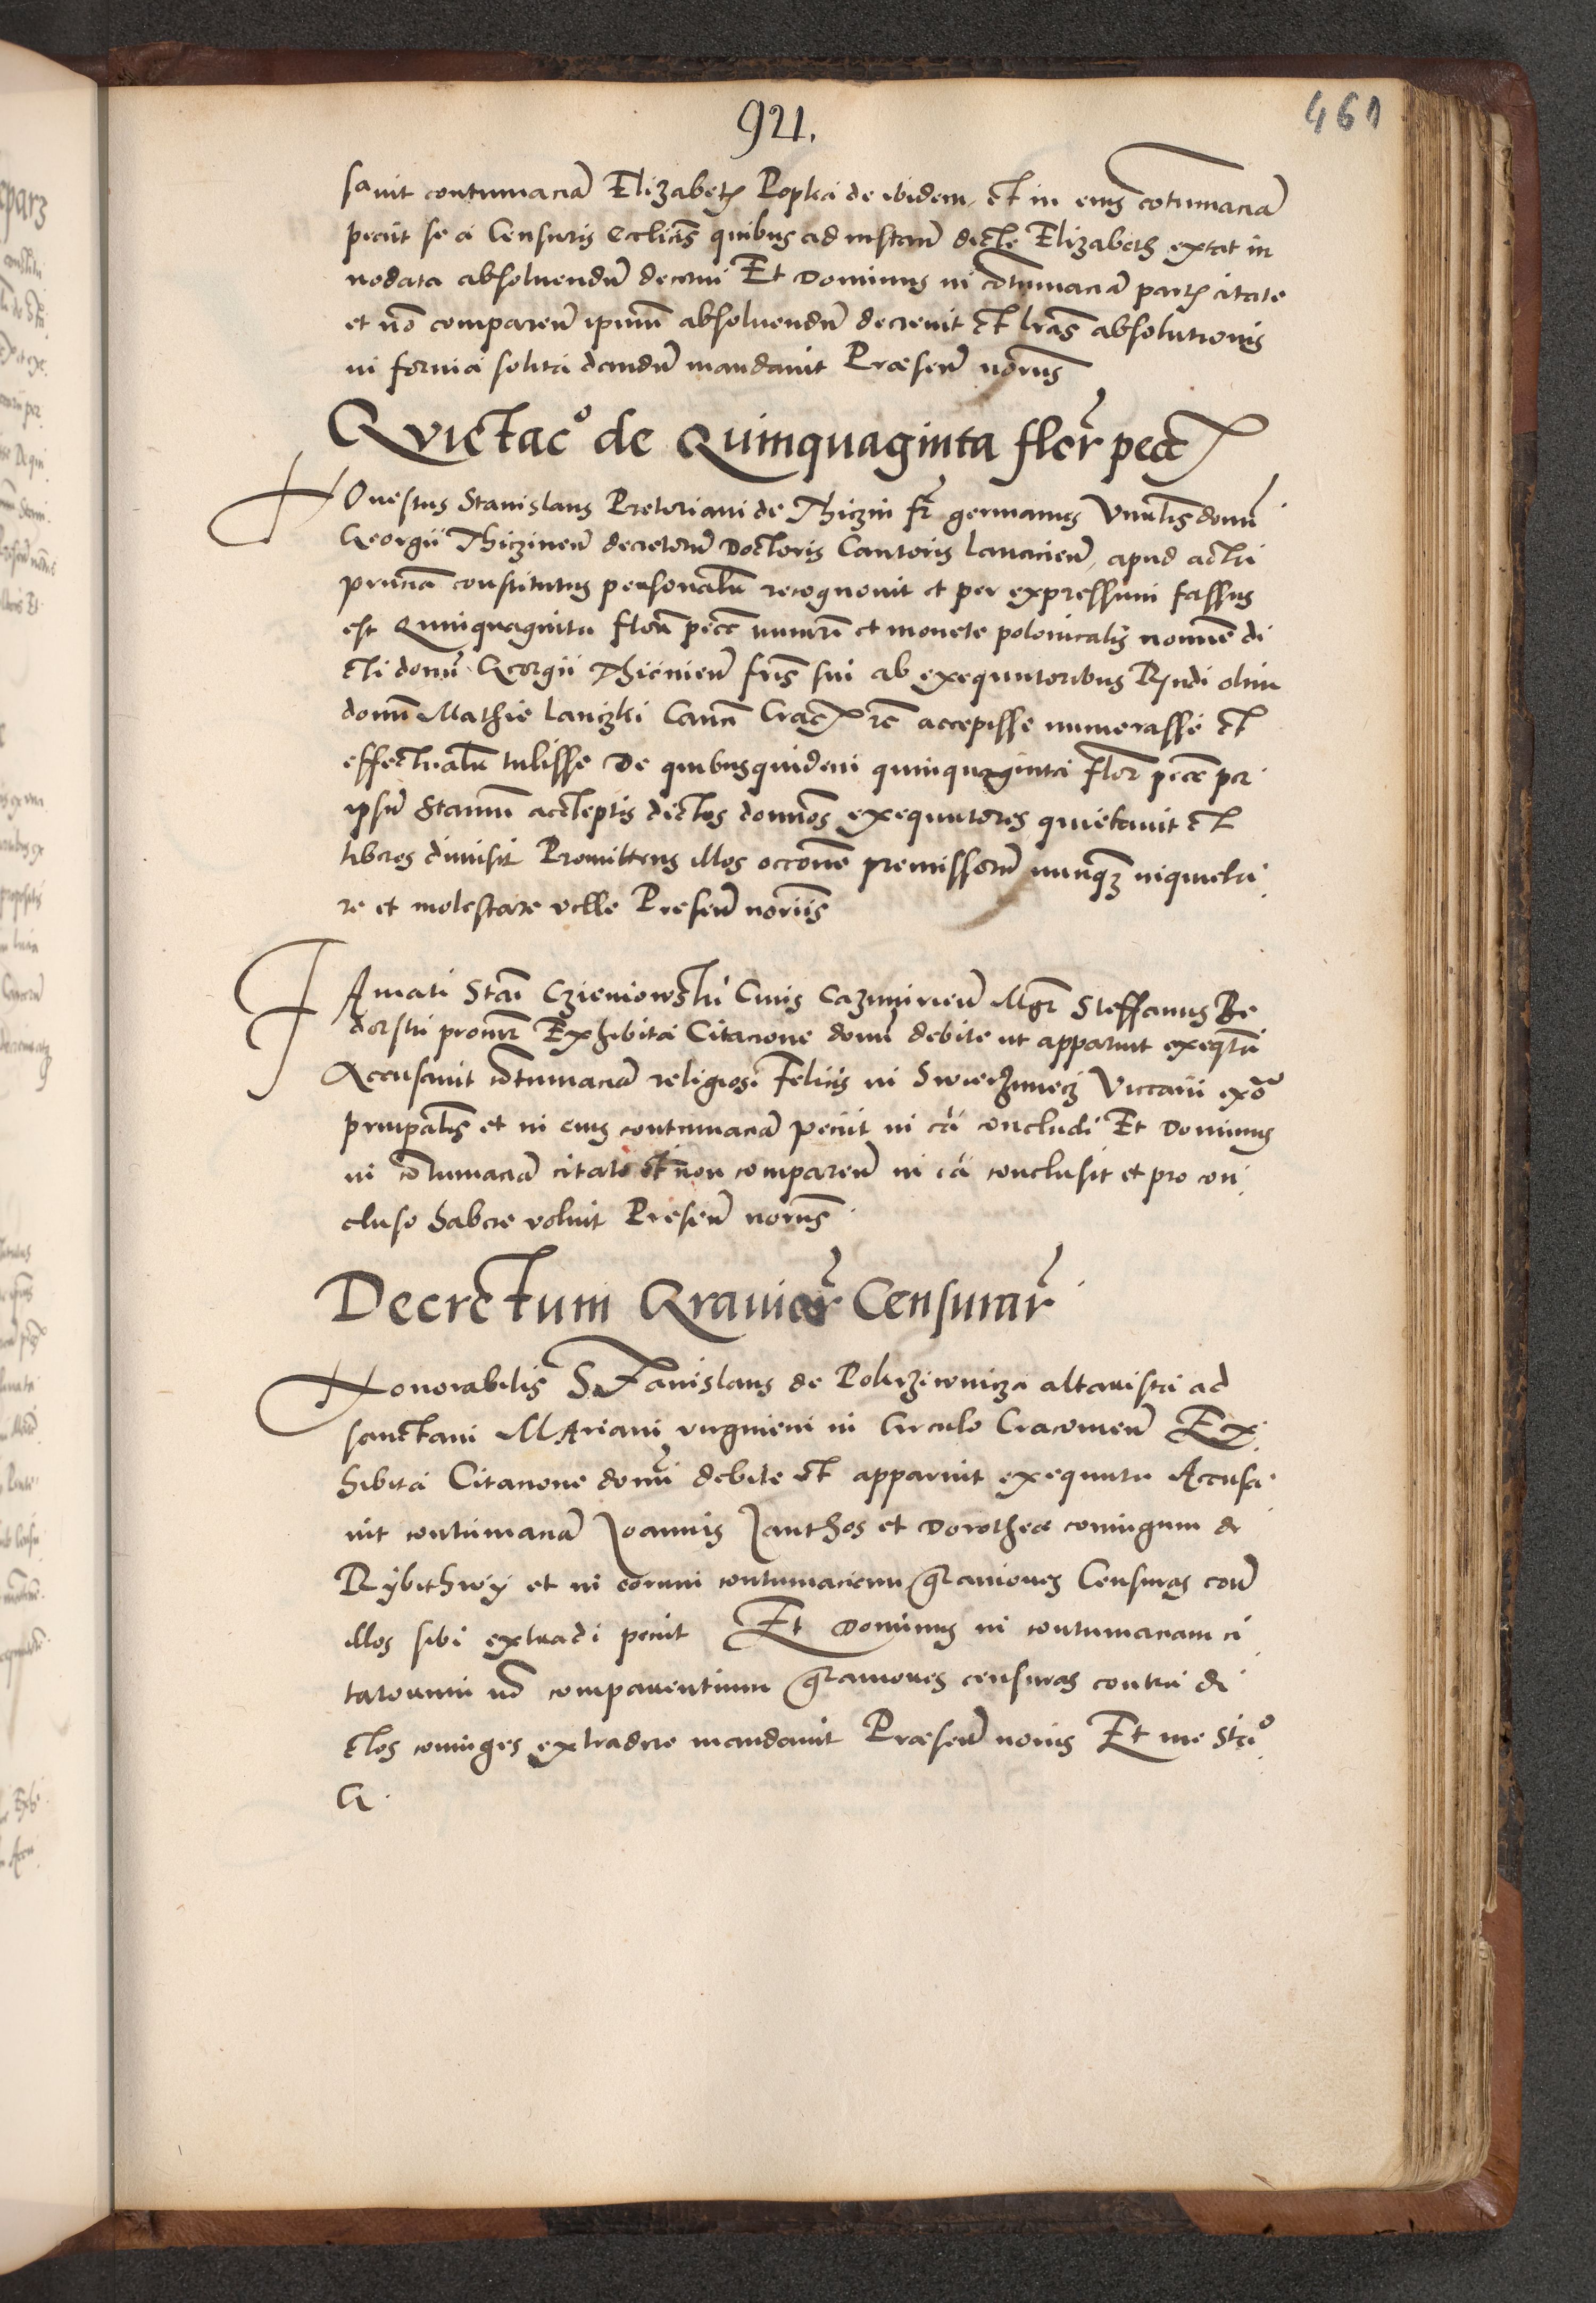 921.
461
sauit contumaciā Elizabeth Popka de ibidem, et in eius cōtumaciā
peciit se a Censuris Ecclīcis quibus ad instanc̄ dicte Elizabeth extat in
nodata absoluendū decerni Et Dominus in cōtumaciā partis citate
et nō comparen̄ ipsum absoluendū decreuit et lrās absolutionis
in forma solita dandū mandauit Præsen̄ norius
Qvictacō de Quinquaginta flor̄ pecc
HOnestus Stanislaus Pretoriani de Thiczin fr̄ germanus Vnlis domī
Georgii Thiczinen̄ decretorū Doctoris Cantoris lancicien̄, apud acta
prnciā constitutus personalr̄ recognouit et per expressum fassus
est Quinquaginta florn̄ pecc numeri et monete polonicalis nomīe di
cti domī Georgii Thicinien̄ fris sui ab exequutoribus Rndi olim
domī Mathie lanczki Canc̄i Crac rē accepisse numerasse et
effectualr̄ tulisse De quibusquidem quinquaginta flor̄ pecc per
ipsū Stanm̄ acceptis dictos domnos exequutores quietauit et
liberos dimisit Promittens illos occonē premissorū nunqz inquieta
re et molestare velle Presen̄ noriis
FAmati Stai Czieniowski Ciuis Cazimirien̄ Mgr̄ Steffanus Be
dorski procur̄ Exhibita Citacione domī debite ut apparuit exeqta
Accusauit cōtumaciā religiosi Felicis in Swierziniecz Viccarii exō
principalis et in eius contumaciā peciit in cā concludi Et Dominus
in cōtumaciā citati et non comparen̄ in cā conclusit et pro con
cluso habere voluit Presen̄ norius
Decretum Grauior̄ Censurar̄
Honorabilis Stanislaus de Pokrziwnicza altarista ad
sanctam MAriam virginem in Circulo Cracouien̄ Ex
hibita Citatione domī debite et apparuit exequuta Accusa
uit contumaciā Joannis Janthos et Dorothea coniugum de
Rÿbithwÿ et in eorum contumaciam grauiores Censuras con̄
illos sibi extradi peciit Et Dominus in contumaciam ci
tatorum nō comparentium grauiores censuras contra di
ctos coniuges extradere mandauit Præsen̄ noriis Et me Staō
G.